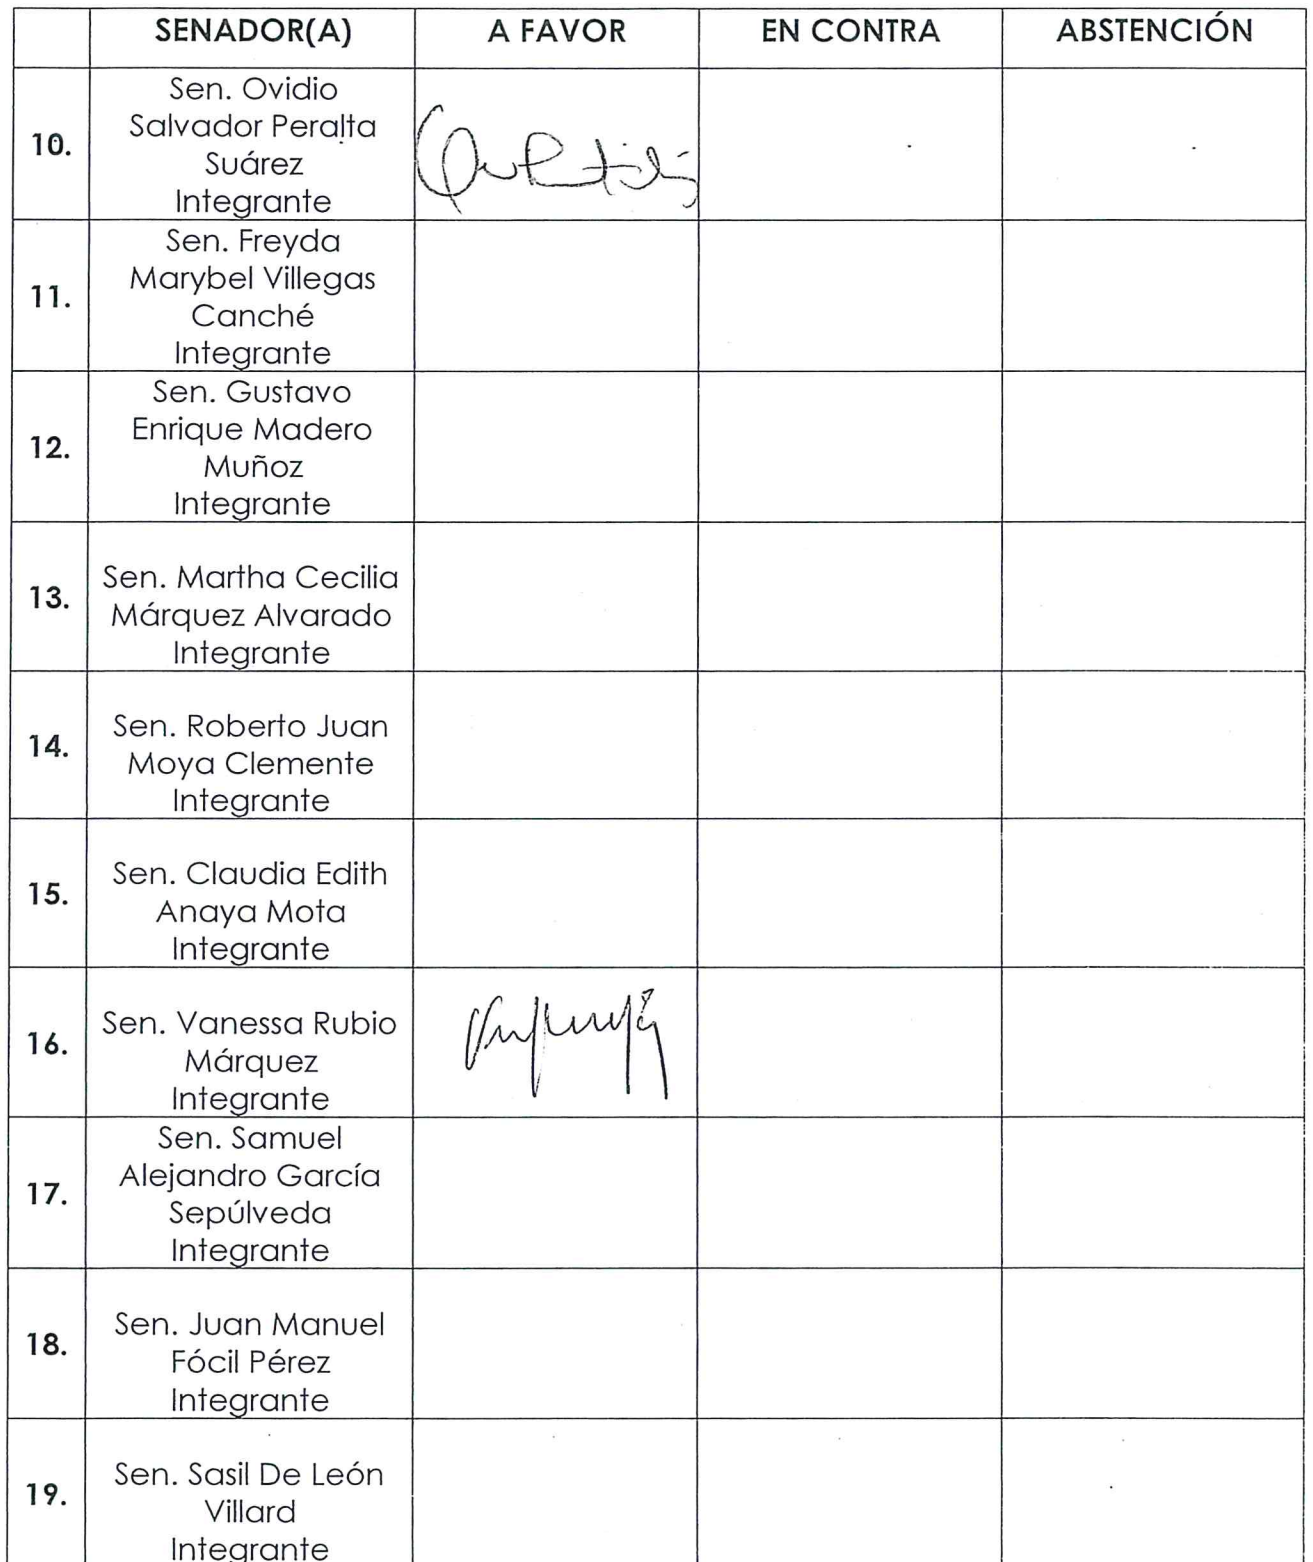 SENADOR(A) A FAVOR EN CONTRA ABSTENCIÓN
Sen. Ovidio
Salvador Peralta
10.
Suárez
Integrante
Sen. Freyda
Marybel Villegas
11.
Canché
Integrante
Sen. Gustavo
Enrique Madero
12.
Muñoz
Integrante
13.
Sen. Martha Cecilia
Márquez Alvarado
Integrante
14.
Sen. Roberto Juan
Moya Clemente
Integrante
15.
Sen. Claudia Edith
Anaya Mota
Integrante
16.
Sen. Vanessa Rubio
Márquez
Integrante
Sen. Samuel
Alejandro García
17.
Sepúlveda
Integrante
18.
Sen. Juan Manuel
Fócil Pérez
Integrante
19.
Sen. Sasil De León
Villard
Integrante